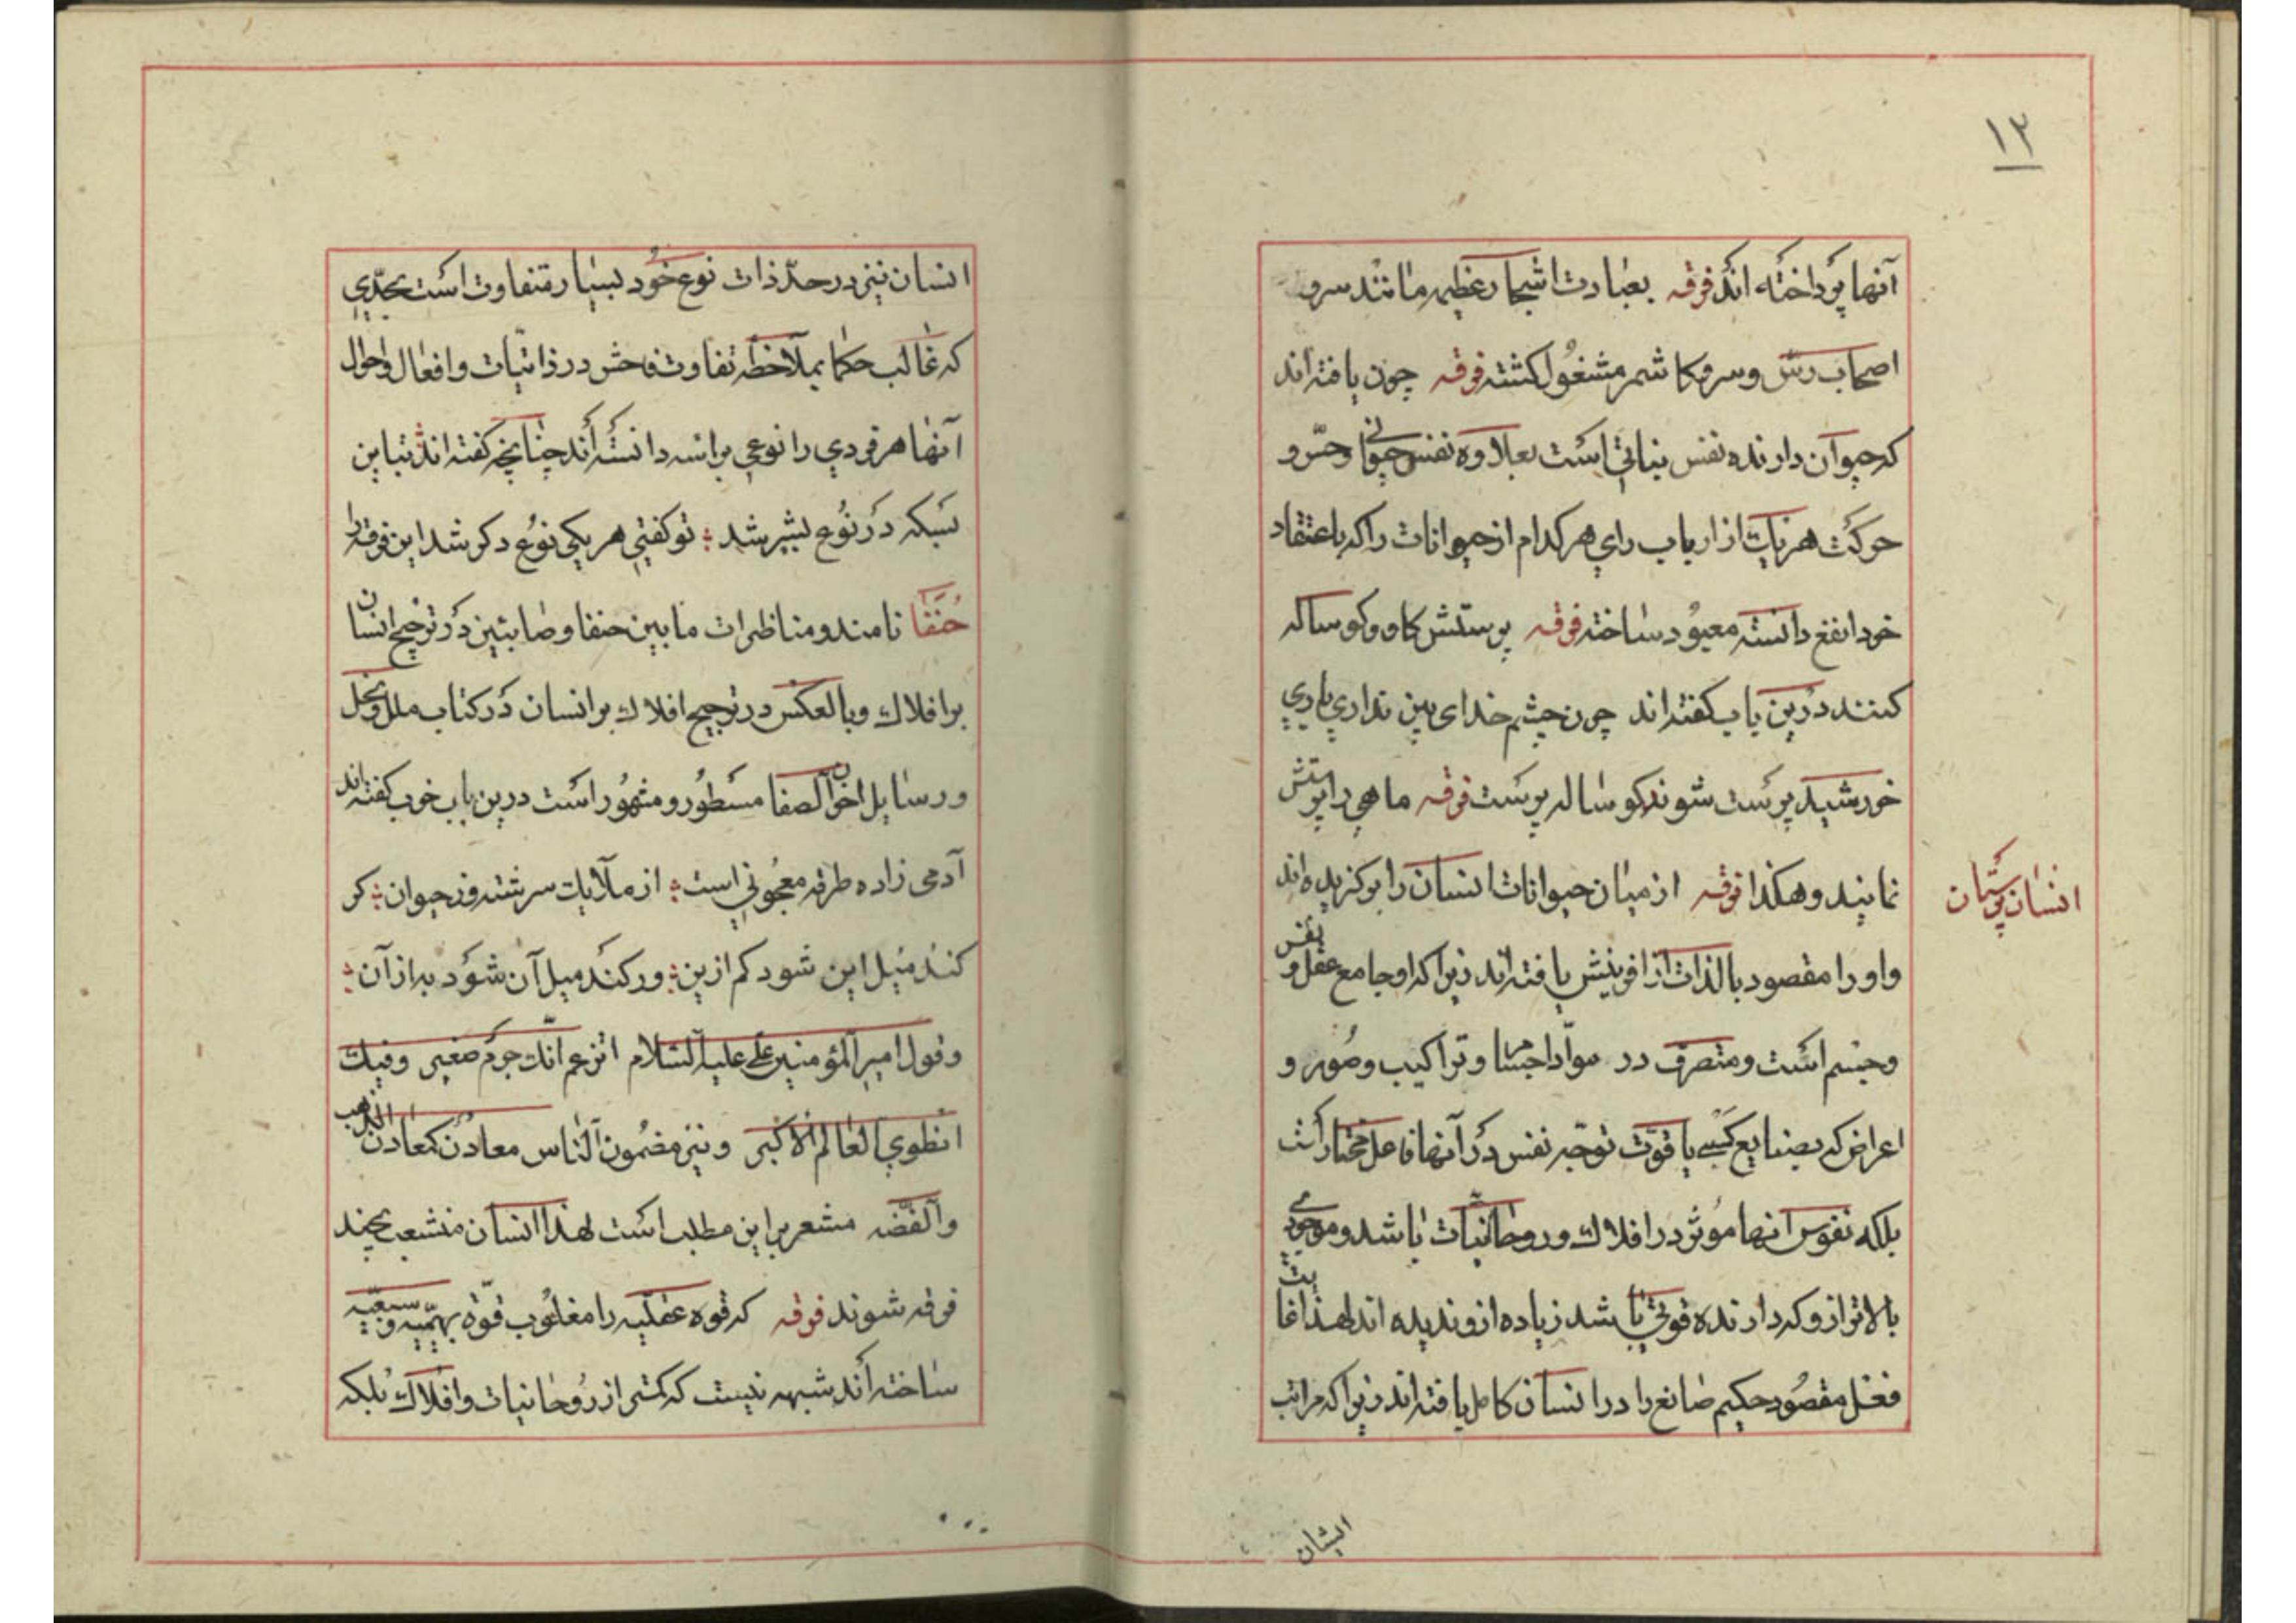 ۱۳
آنها پرداخته اند فرقه بعبادت اشجار عظیمه مانند سرو
اصحاب رس و سرو کاشمر مشغول کشته فرقه چون یافته اند
که حیوان دارنده نفس نباتی است بعلاوه نفس حیوانی و حس و
حرکت هر یک از ارباب رای هر کدام از حیوانات را که باعتقاد
خود انفع دانسته معبود ساخته فرقه پرستش کاو و کوساله
کنند درین باب کفته اند چون چشم خدای بین نداری باری
خورشید پرست شو نه کوساله پرست فرقه ماهی را پرستش
نمایند و هکذا فرقه از میان حیوانات انسان را برکزیده اند
انسان پرستان
و او را مقصود بالذات از افرینش یافته اند زیرا که او جامع عقل و نفس
و جسم است و متصرف در مواد اجسام و تراکیب و صور و
اعراض که بصنایع کسبی یا قوت توجه نفس در آنها فاعل مختار است
بلکه نفوس انها موثر در افلاک و روحانیات باشد و موجودی
بالاتر از و که دارنده قوتی باشد زیاده از و ندیده اند لهذا غایت
فعل مقصود حکیم صانع را در انسان کامل یافته اند زیرا که مراتب
انسان
انسان نیز در حد ذات نوع خود بسیار متفاوت است بحدی
که غالب حکما بملاحظه تفاوت فاحش در ذاتیات و افعال و احوال
آنها هر فردی را نوعی براسه دانسته اند چنانچه کفته اند تباین
بسکه در نوع بشیر شد تو کفتی هر یکی نوع دکر شد این فرقه را
حنفا نامند و مناظرات مابین حنفا و صابئین در ترجیح انسان
بر افلاک و بالعکس در ترجیح افلاک بر انسان در کتاب ملل و نحل
و رسایل اخوان الصفا مسطور و مشهور است درین باب خوب کفته اند
آدمی زاده طرفه معجونی است از ملایک سرشته وز حیوان کر
کند میل این شود کم ازین ور کند میل آن شود به از آن
و قول امیر المؤمنین علی علیه السلام اتزعم انک جرم صغیر و فیک
انطوی العالم الاکبر و نیز مضمون الناس معادن کمعادن الذهب
و الفضه مشعر بر این مطلب است لهذا انسان منشعب بچند
فرقه شوند فرقه که قوه عقلیه را مغلوب قوه بهیمیه و سبعیه
ساخته اند شبهه نیست که کمتر از روحانیات و افلاک بلکه